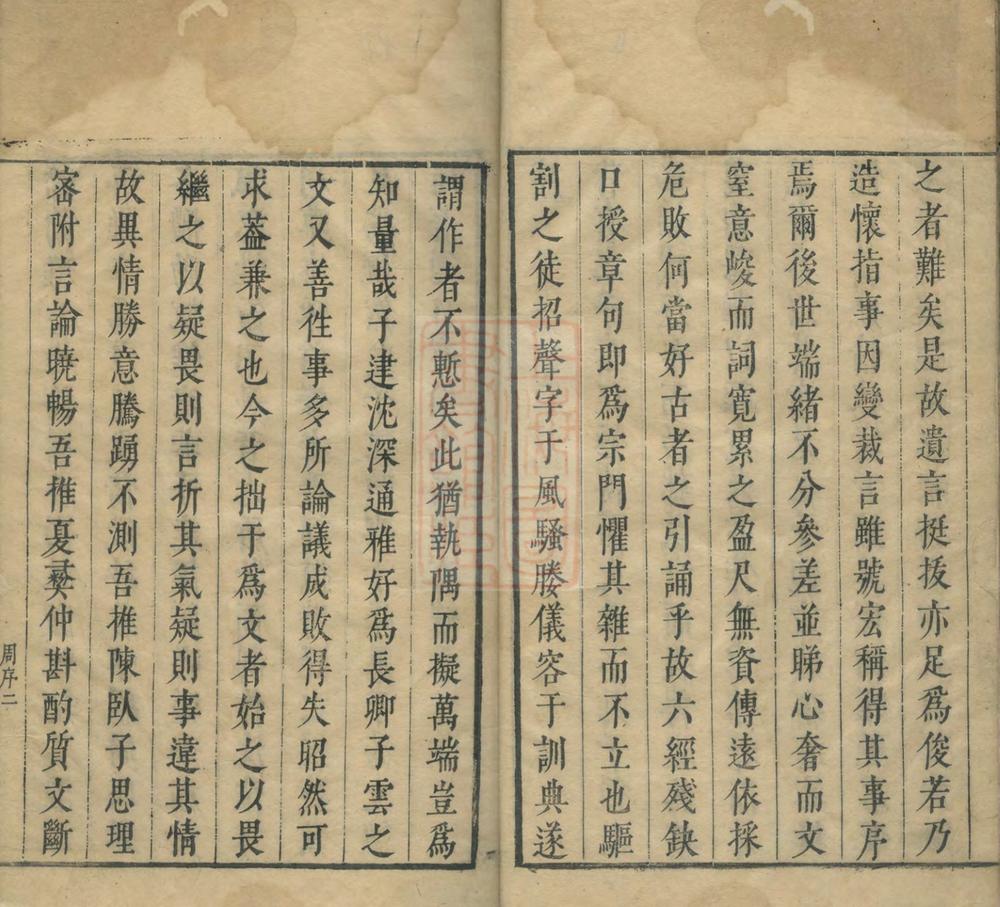 之者難矣是故遺言挺拔亦足爲俊若乃
造懷指事因變裁言雖號宏稱得其事序
焉爾後世端緒不分參差並睇心奢而文
窒意峻而詞寬累之盈尺無資傳遠依採
危敗何當好古者之引誦乎故六經殘鈌
口授章句即爲宗門懼其雜而不立也驅
割之徒招聲字于風騷媵儀容于訓典遂
謂作者不慙矣此猶執隅而擬萬端豈爲
知量哉子建沈深通雅好爲長卿子雲之
文又善徃事多所論議成敗得失昭然可
求葢兼之也今之拙于爲文者始之以畏
繼之以疑畏則言折其氣疑則事違其情
故異情勝意騰踴不測吾推陳臥子思理
宻附言論曉暢吾推夏彝仲斟酌質文斷
周序二